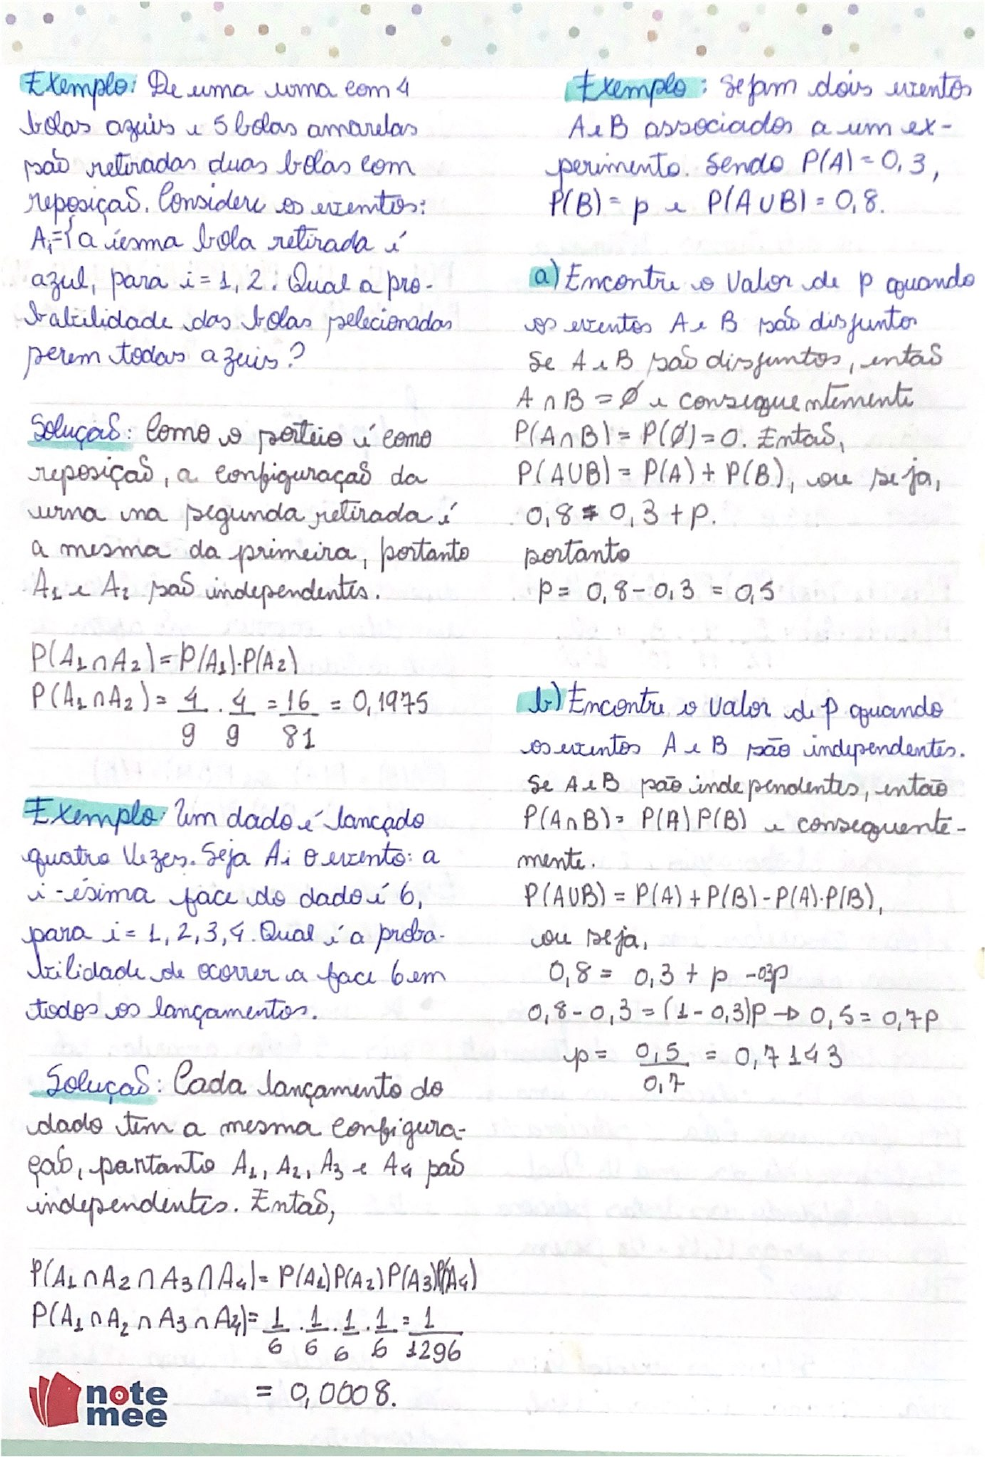 Exemplo: De uma urna com 4
bolas azuis e 5 bolas amarelas
são retiradas duas bolas com
reposição. Considere os eventos:
Ai={a iésma bola retirada é
azul, para i = 1, 2. Qual a pro-
babilidade das bolas selecionadas
serem todas azuis?
Solução: Como o sorteio é como
reposição, a configuração da
urna na segunda retirada é
a mesma da primeira, portanto
A1 e A2 são independentes.
P(A1 ∩ A2) = P(A1)·P(A2)
P(A1 ∩ A2) = 4/9 · 4/9 = 16/81 = 0,1975
Exemplo: Um dado é lançado
quatro vezes. Seja Ai o evento: a
i-ésima face do dado é 6,
para i = 1, 2, 3, 4. Qual é a proba-
bilidade de ocorrer a face 6 em
todos os lançamentos.
Solução: Cada lançamento do
dado tem a mesma configura-
ção, portanto A1, A2, A3 e A4 são
independentes. Então,
P(A1 ∩ A2 ∩ A3 ∩ A4) = P(A1)P(A2)P(A3)P(A4)
P(A1 ∩ A2 ∩ A3 ∩ A4) = 1/6 · 1/6 · 1/6 · 1/6 = 1/1296
= 0,0008.
note
mee
Exemplo: Sejam dois eventos
A e B associados a um ex-
perimento. Sendo P(A) = 0,3,
P(B) = p e P(A∪B) = 0,8.
a) Encontre o valor de p quando
os eventos A e B são disjuntos
Se A e B são disjuntos, então
A ∩ B = Ø e consequentemente
P(A∩B) = P(Ø) = 0. Então,
P(A∪B) = P(A) + P(B), ou seja,
0,8 = 0,3 + p.
portanto
p = 0,8 - 0,3 = 0,5
b) Encontre o valor de p quando
os eventos A e B são independentes.
Se A e B são independentes, então
P(A∩B) = P(A)P(B) e consequente-
mente.
P(A∪B) = P(A) + P(B) - P(A)·P(B),
ou seja,
0,8 = 0,3 + p - 0,3p
0,8 - 0,3 = (1 - 0,3)p → 0,5 = 0,7p
p = 0,5/0,7 = 0,7143